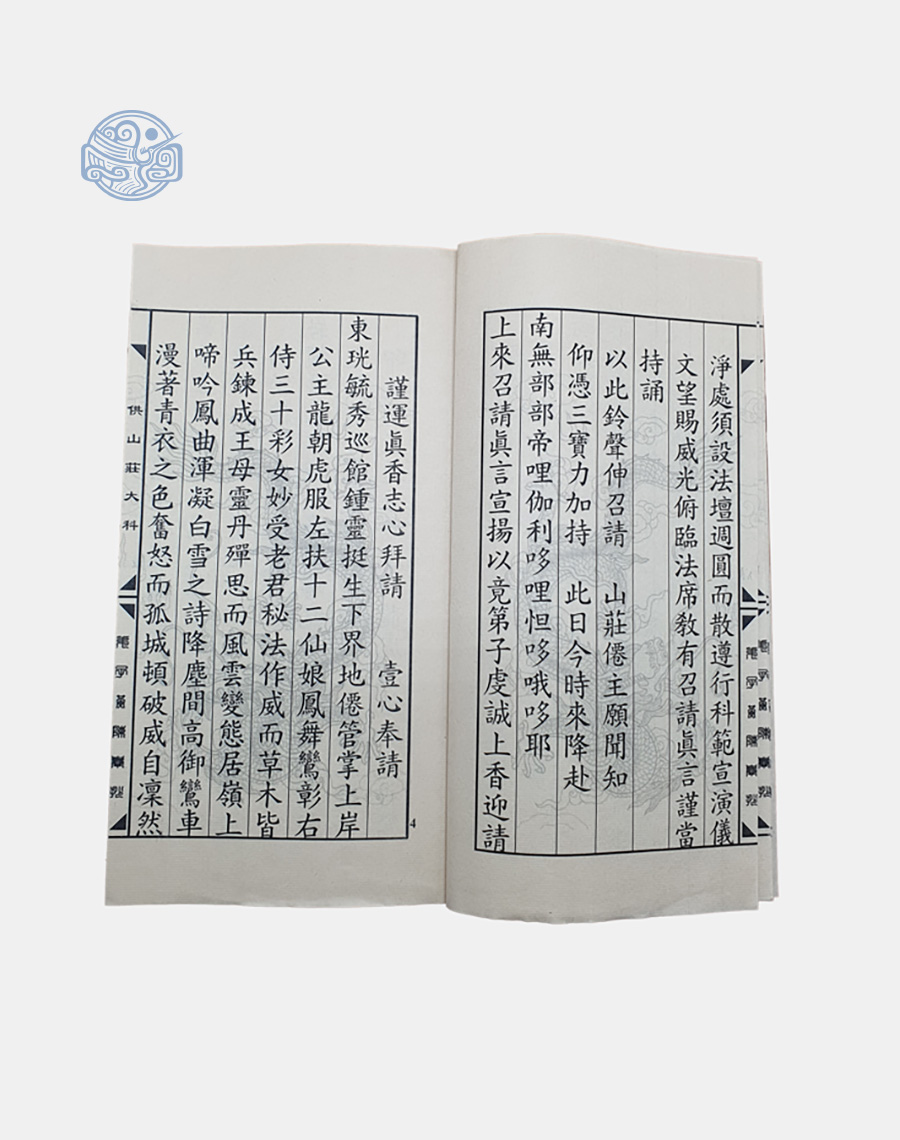 淨處須設法壇週圓而散遵行科範宣演儀
文望賜威光俯臨法席教有召請眞言謹當
持誦
以此鈴聲伸召請 山莊僊主願聞知
仰憑三寶力加持 此日今時來降赴
南無部部帝哩伽利哆哩怛哆哦哆耶
上來召請眞言宣揚以竟第子虔誠上香迎請
謹運眞香志心拜請 壹心奉請
東珖毓秀巡館鍾靈挺生下界地僊管掌上岸
公主龍朝虎服左扶十二仙娘鳳舞鸞彰右
侍三十彩女妙受老君秘法作威而草木皆
兵鍊成王母靈丹殫思而風雲變態居嶺上
啼吟鳳曲渾凝白雪之詩降塵間高御鸞車
漫著青衣之色奮怒而孤城頓破威自凜然
供山莊大科
4